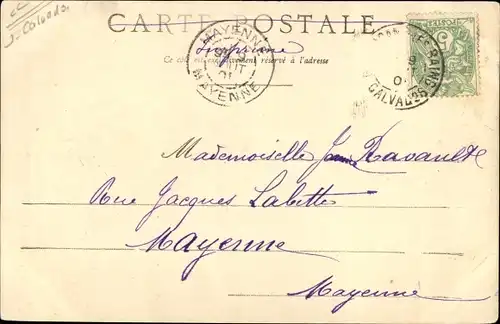 CARTE POSTALE
Imprimé
Ce côté est exclusivement réservé à l'adresse
MAYENNE
MAYENNE
CALVADOS
POSTES
Mademoiselle Ravault
Rue Jacques Labitte
Mayenne
Mayenne